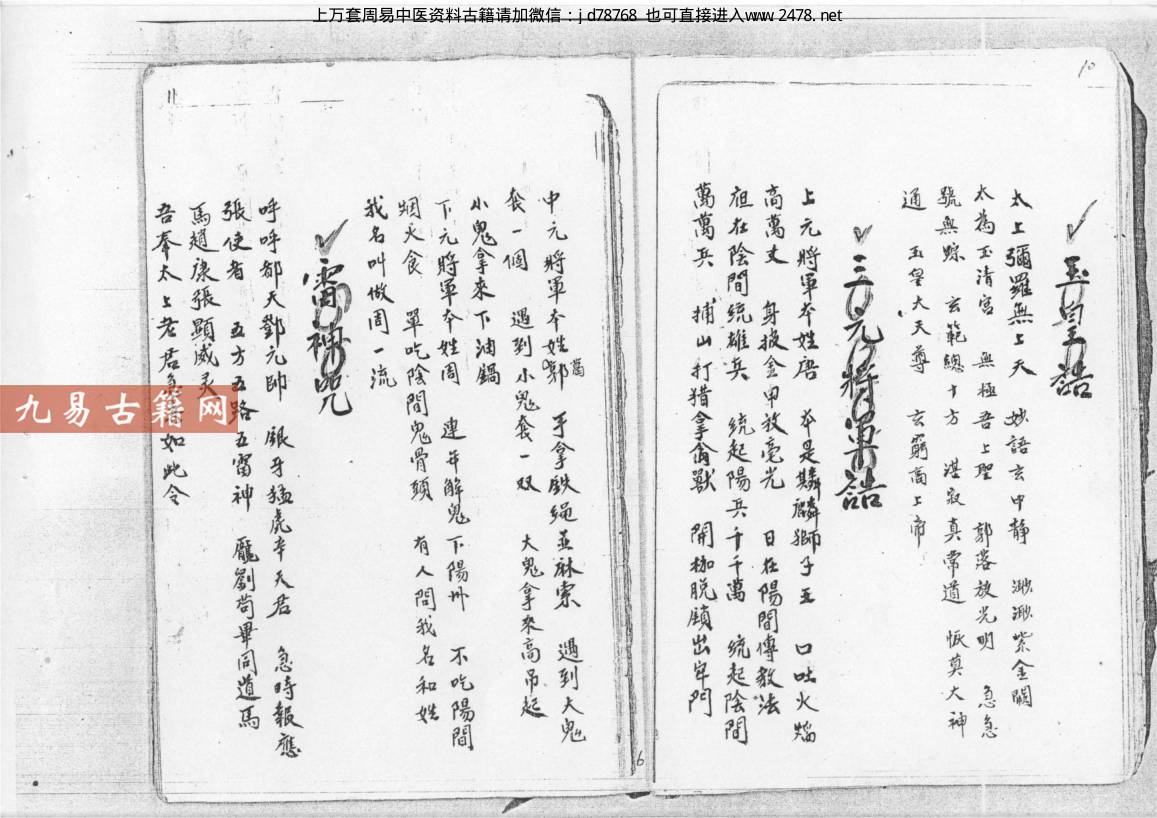 上万套周易中医资料古籍请加微信：jd78768 也可直接进入www.2478.net
10
玉皇誥
太上彌羅無上天 妙語玄中静 渺渺紫金闕
太為玉清宮 無極吾上聖 郭落放光明 急急
號無踪 玄範總十方 湛寂真常道 恢莫大神
通 玉皇大天尊 玄窮高上帝
三元將軍誥
上元將軍本姓唐 本是麟麟獅子王 口吐火焰
高萬丈 身披金甲放毫光 日在陽間傳教法
在陰間統雄兵 統起陽兵千千萬 統起陰間
萬萬兵 捕山打猎拿禽獸 開枷脱鎖出牢門
11
中元將軍本姓郭 葛 手拿鉄绳並麻索 遇到大鬼
套一個 遇到小鬼套一双 大鬼拿來高吊起
小鬼拿來下油鍋
下元將軍本姓周 連年解鬼下陽州 不吃陽間
烟火食 單吃陰間鬼骨頭 有人問我名和姓
我名叫做周一流
雷神咒
呼呼都天鄧元帥 銀牙猛虎辛天君 急時報應
張使者 五方五路五雷神 龐劉苟畢同道馬
馬趙康張顯威灵
吾奉太上老君急諸如此令
6
九易古籍网